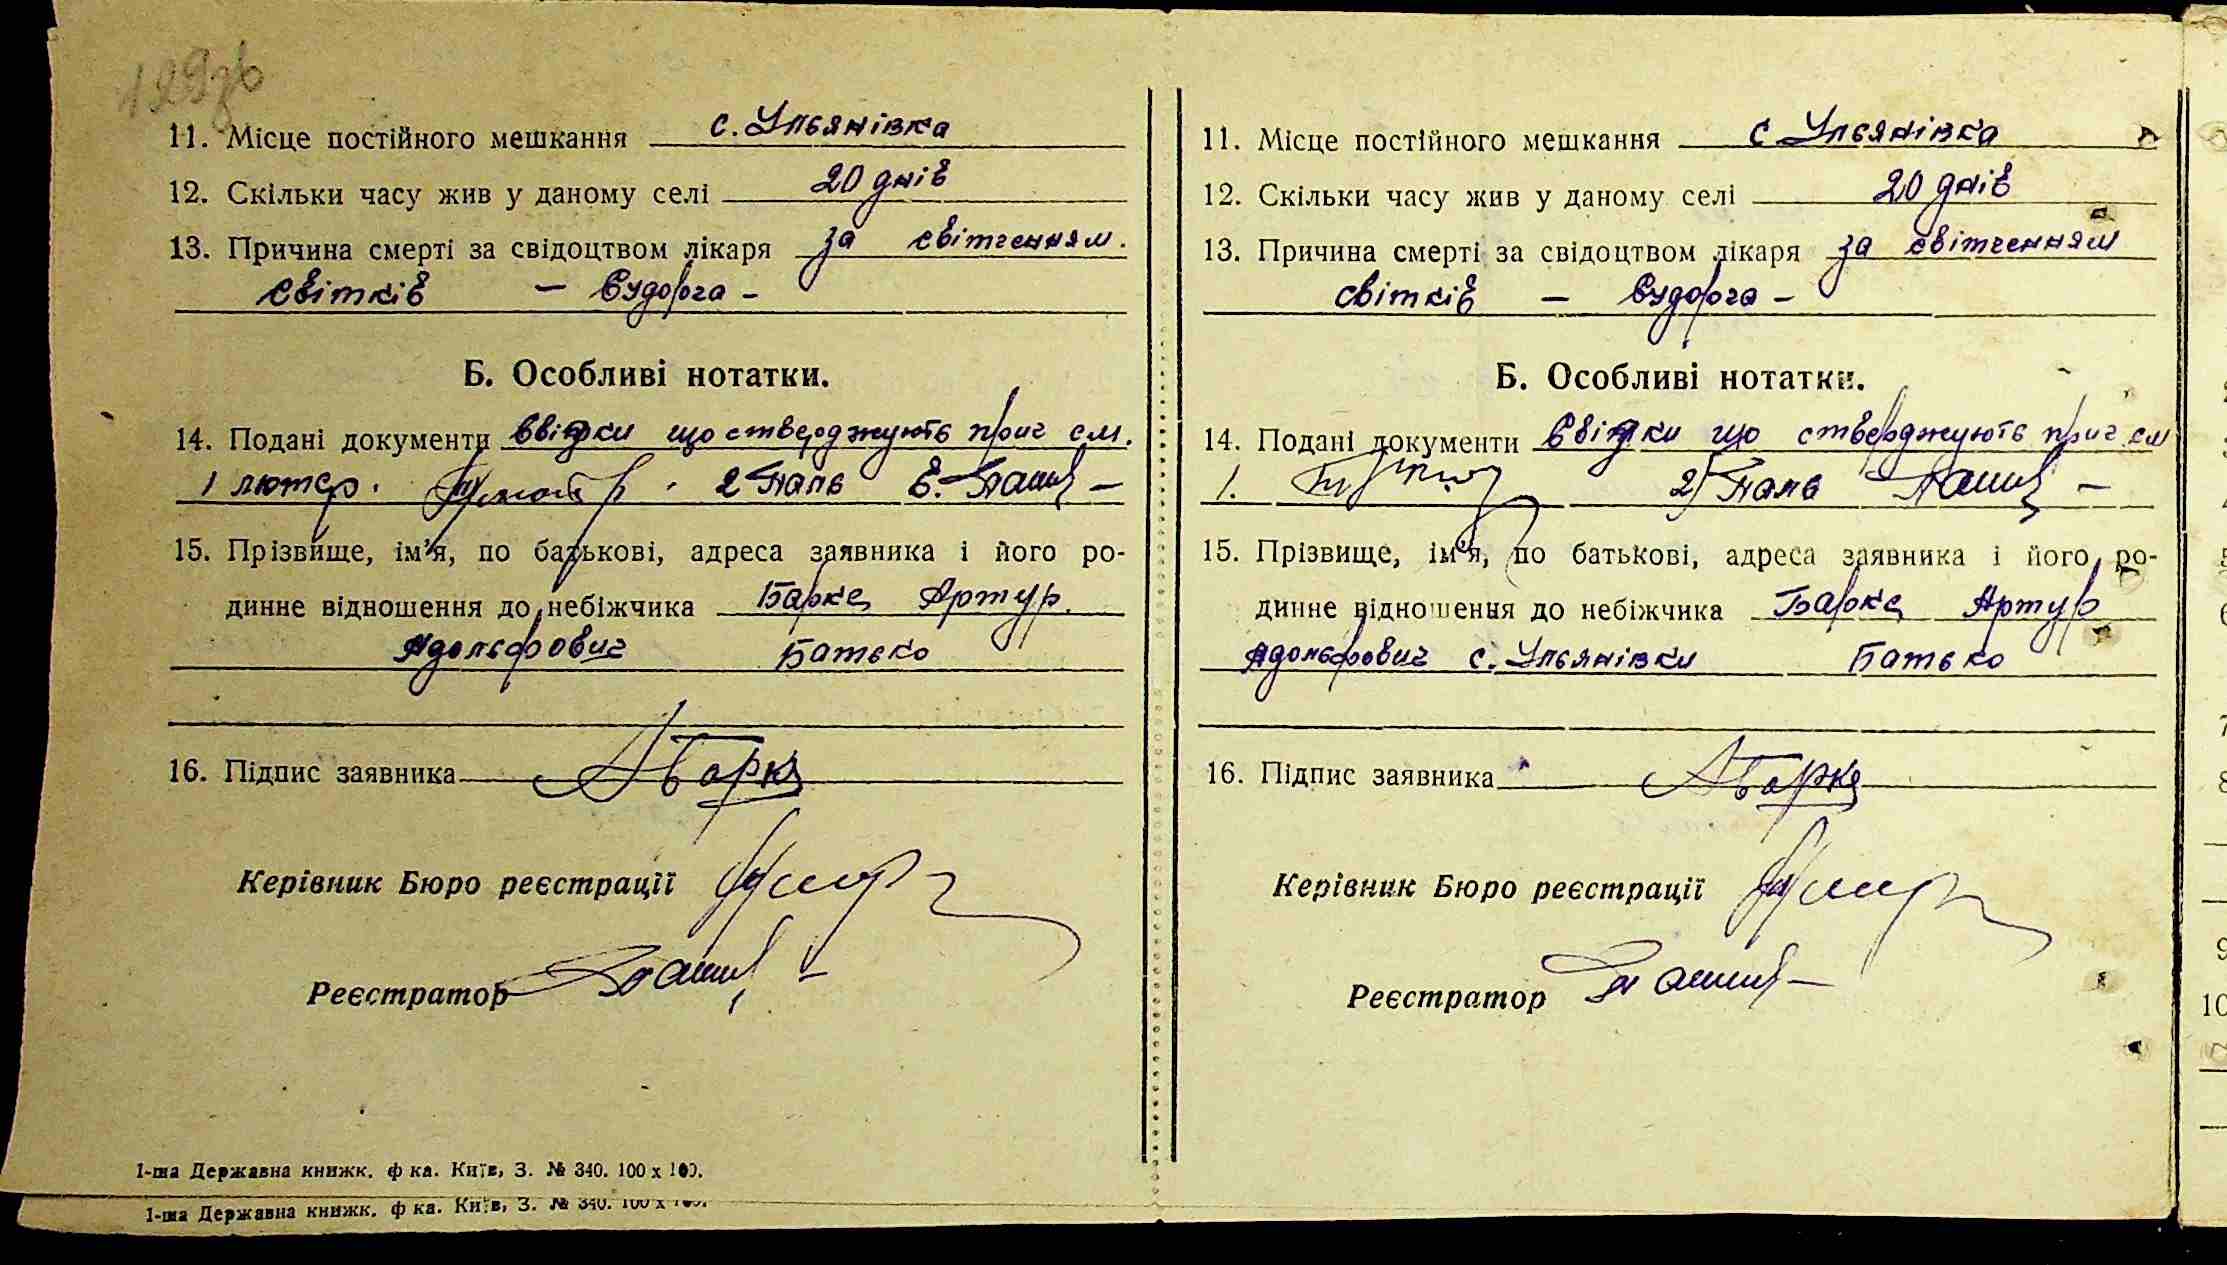 129зв
11. Місце постійного мешкання с. Ульянівка
12. Скільки часу жив у даному селі 20 днів
13. Причина смерті за свідоцтвом лікаря за світченням.
світків — Судорога —
Б. Особливі нотатки.
14. Подані документи Свідки що стверджують прич см.
1 лютер. 2 Паль Е.
15. Прізвище, ім'я, по батькові, адреса заявника і його ро-
динне відношення до небіжчика Барке Артур.
Адольфович Батько
16. Підпис заявника АБарке
Керівник Бюро реєстрації
Реєстратор
1-ша Державна книжк. ф ка. Київ, З. № 340. 100 х 100.
1-ша Державна книжк. ф ка. Київ, З. № 340. 100 х 100.
11. Місце постійного мешкання с Ульянівка
12. Скільки часу жив у даному селі 20 днів
13. Причина смерті за свідоцтвом лікаря за світченням
світків — Судорога —
Б. Особливі нотатки.
14. Подані документи Свідки що стверджують прич см
1. 2) Паль
15. Прізвище, ім'я, по батькові, адреса заявника і його ро-
динне відношення до небіжчика Барке Артур
Адольфович с. Ульянівки Батько
16. Підпис заявника АБарке
Керівник Бюро реєстрації
Реєстратор
9
10